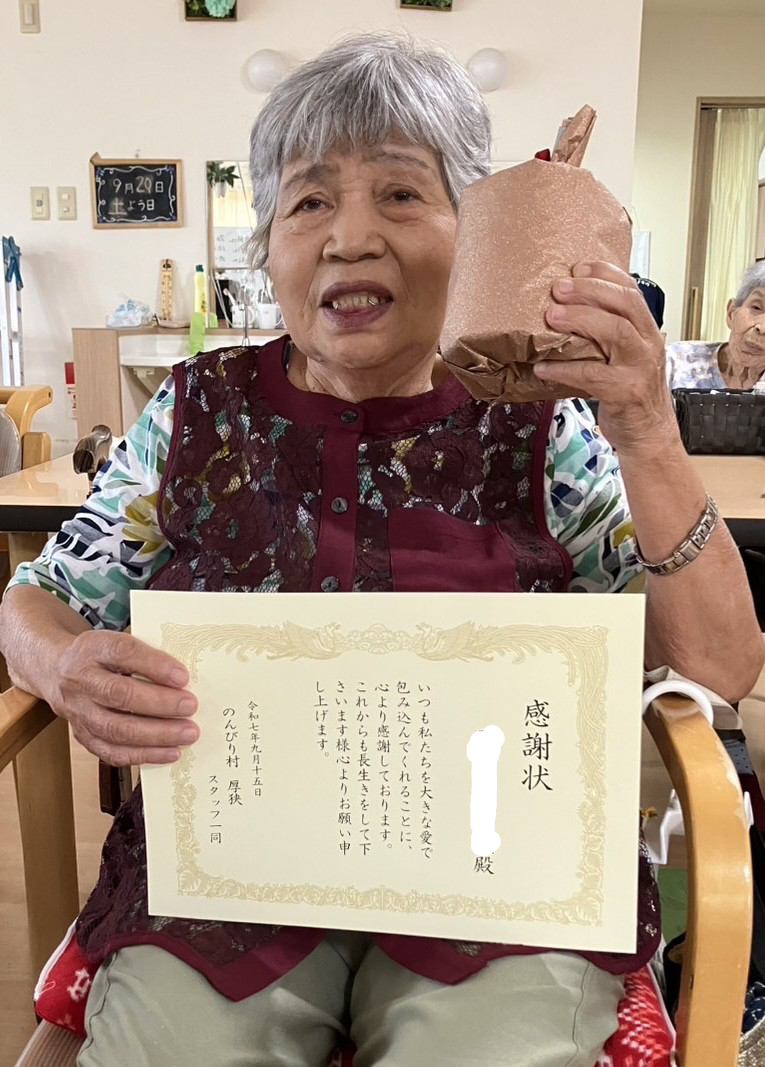 9月20日
土よう日
感謝状
殿
いつも私たちを大きな愛で
包み込んでくれることに、
心より感謝しております。
これからも長生きをして下
さいます様心よりお願い申
し上げます。
令和七年九月十五日
のんびり村 厚狭
スタッフ一同